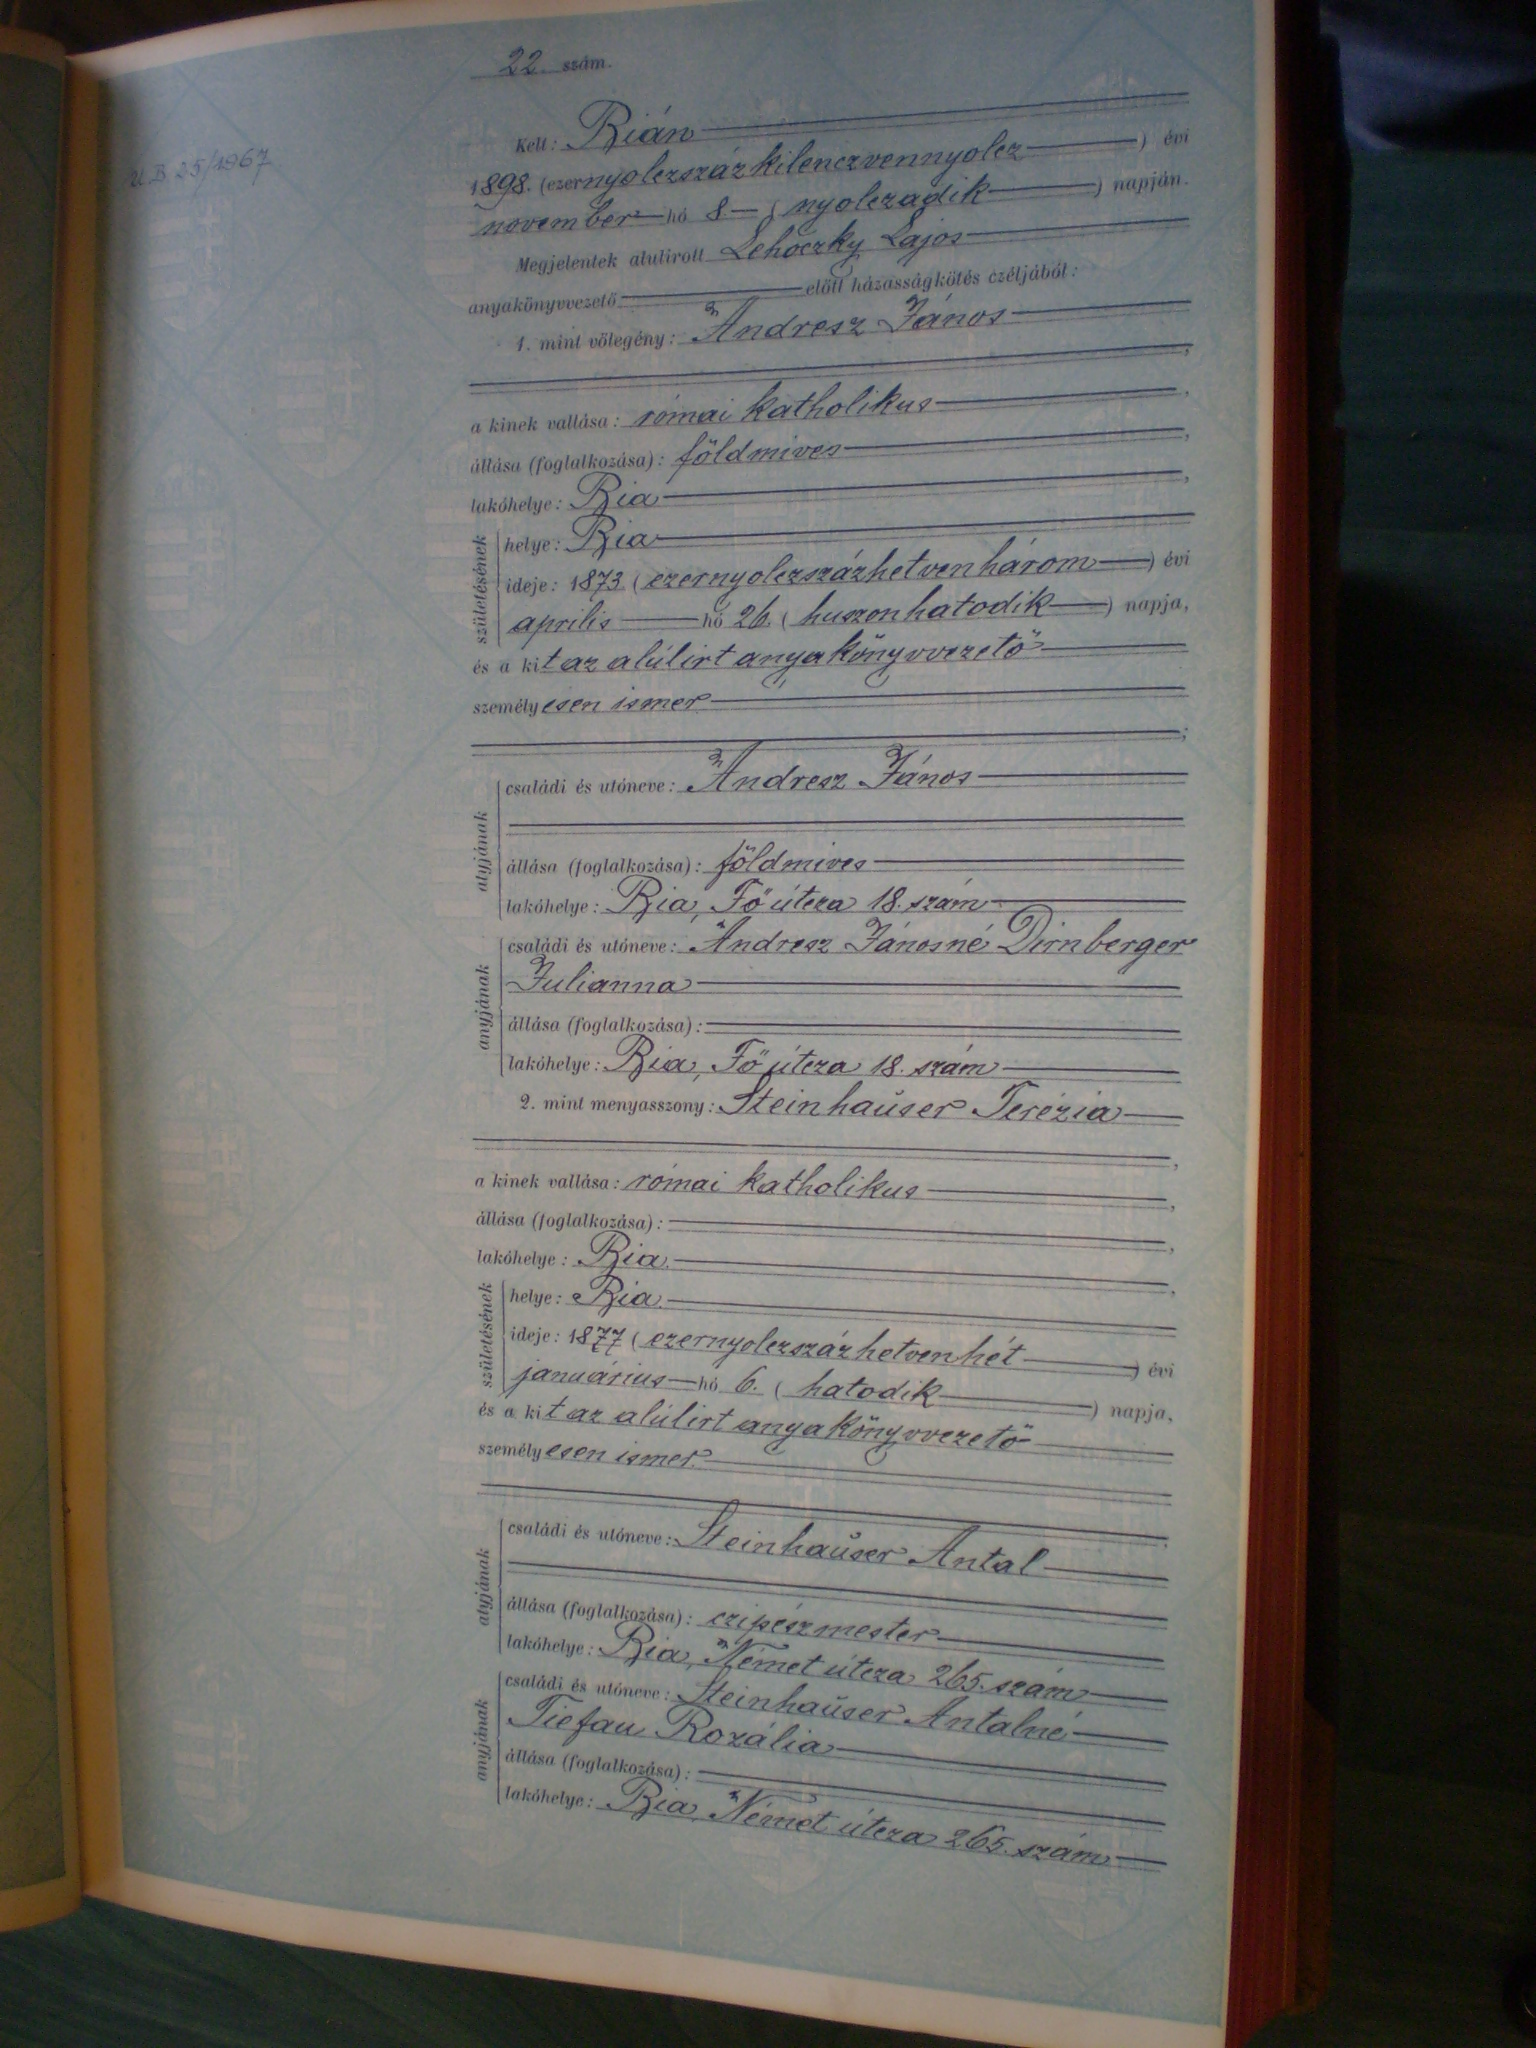 22 szám.
U B 25/1967
Kelt: Bián
1898. (ezernyolczszázkilenczvennyolcz) évi
november hó 8 (nyolczadik) napján.
Megjelentek alulirott Lehoczky Lajos
anyakönyvvezető előtt házasságkötés czéljából:
1. mint vőlegény: Andresz János
a kinek vallása: római katholikus,
állása (foglalkozása): földmives,
lakóhelye: Bia,
születésének
helye: Bia
ideje: 1873 (ezernyolczszázhetvenhárom) évi
április hó 26. (huszonhatodik) napja,
és a kit az alúlirt anyakönyvvezető
személyesen ismer
;
atyjának
családi és utóneve: Andresz János
állása (foglalkozása): földmives
lakóhelye: Bia, Fő útcza 18. szám
anyjának
családi és utóneve: Andresz Jánosné Dirnberger
Julianna
állása (foglalkozása):
lakóhelye: Bia, Fő útcza 18. szám
2. mint menyasszony: Steinhaŭser Terézia
,
a kinek vallása: római katholikus,
állása (foglalkozása):,
lakóhelye: Bia.,
születésének
helye: Bia.
ideje: 1877 (ezernyolczszázhetvenhét) évi
januárius hó 6. (hatodik) napja,
és a kit az alúlirt anyakönyvvezető
személyesen ismer.
atyjának
családi és utóneve: Steinhaŭser Antal
állása (foglalkozása): czipészmester
lakóhelye: Bia, Német útcza 265. szám
anyjának
családi és utóneve: Steinhaŭser Antalné
Tiefau Rozália
állása (foglalkozása):
lakóhelye: Bia, Német útcza 265. szám